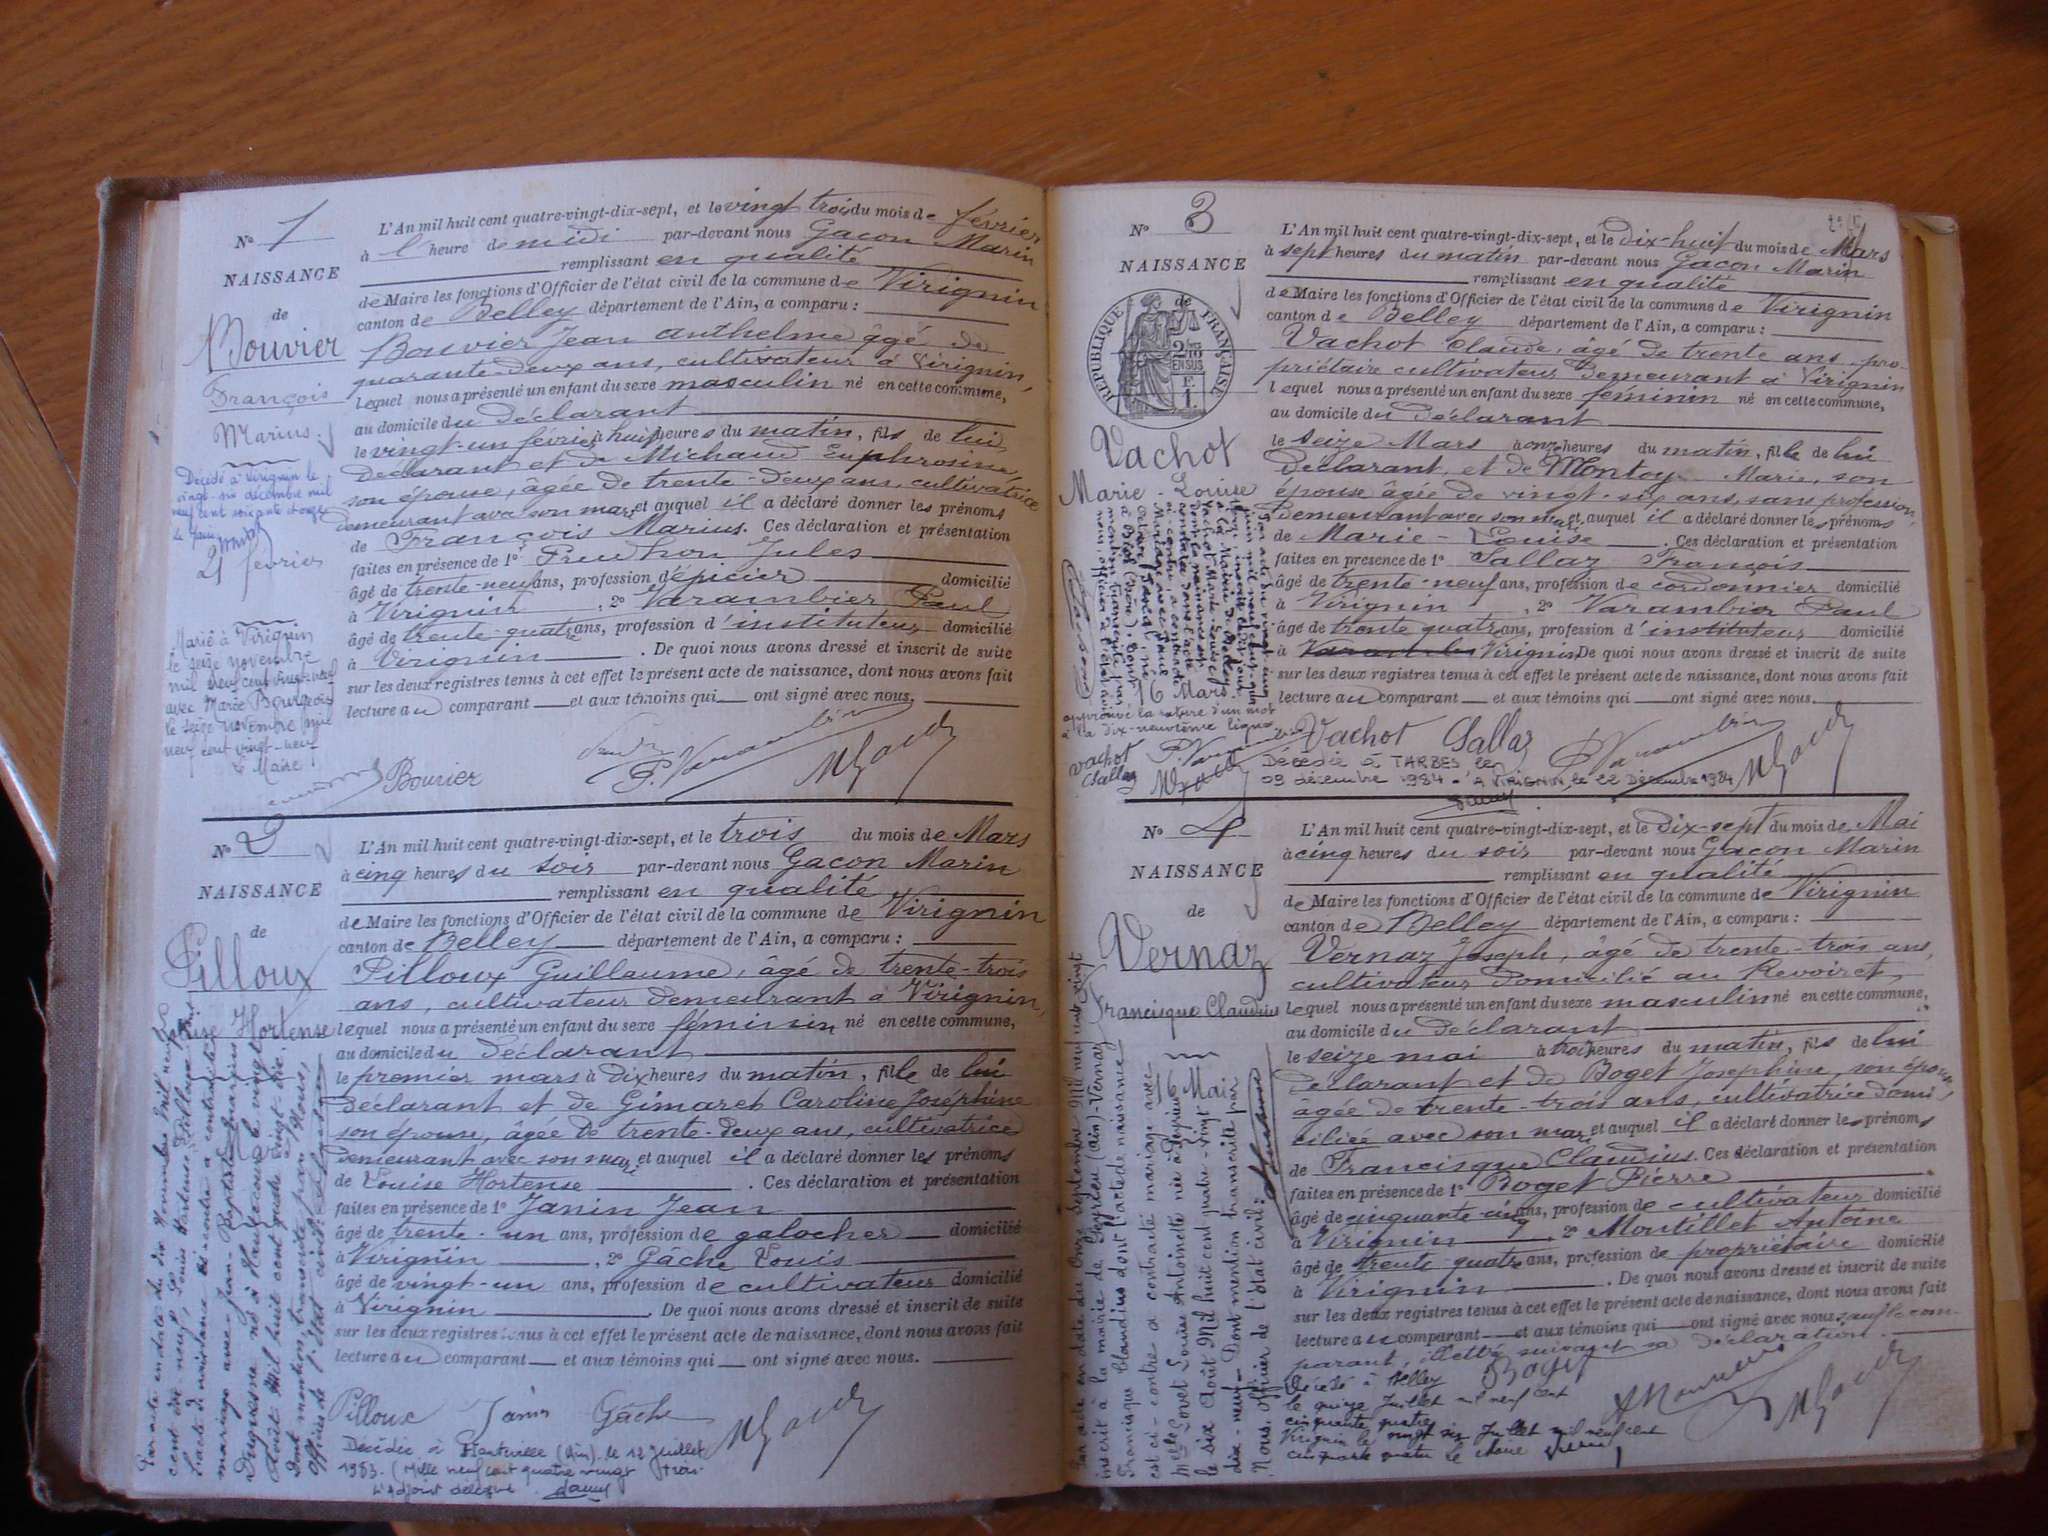 N° 1
NAISSANCE
de
Bouvier
François
Marius
Décédé à Virignin le
vingt-six décembre mil
neuf cent soixante
le Maire
21 février
Marié à Virignin
le seize novembre
mil neuf cent vingt-neuf
avec Marie Bourgeois
le seize novembre mil
neuf cent vingt-neuf
Le Maire
L'An mil huit cent quatre-vingt-dix-sept, et le vingt trois du mois de février
à l'heure de midi par-devant nous Gacon Marin
remplissant en qualité
de Maire les fonctions d'Officier de l'état civil de la commune de Virignin
canton de Belley département de l'Ain, a comparu :
Bouvier Jean Anthelme âgé de
quarante-deux ans, cultivateur à Virignin,
lequel nous a présenté un enfant du sexe masculin né en cette commune,
au domicile du Déclarant
le vingt-un février à huit heures du matin, fils de lui
Déclarant et de Michaud Euphrosine
son épouse, âgée de trente-deux ans, cultivatrice
demeurant avec son mari et auquel il a déclaré donner les prénoms
de François Marius. Ces déclaration et présentation
faites en présence de 1° Prudhon Jules
âgé de trente-neuf ans, profession d'épicier domicilié
à Virignin, 2° Varambier Paul
âgé de trente-quatre ans, profession d'instituteur domicilié
à Virignin. De quoi nous avons dressé et inscrit de suite
sur les deux registres tenus à cet effet le présent acte de naissance, dont nous avons fait
lecture au comparant et aux témoins qui ont signé avec nous.
Bouvier P. Varambier MGacon
N° 2
NAISSANCE
de
Pilloux
Louise Hortense
Par acte en date du dix Novembre mil neuf
cent dix-neuf, Louise Hortense Pilloux dont
l'acte de naissance ci-contre a contracté
mariage avec Jean-Baptiste
Duquesne né à Hautecour le vingt
Août mil huit cent quatre-vingt-dix.
Dont mention transcrite par Nous,
Officier de l'état civil.
L'An mil huit cent quatre-vingt-dix-sept, et le trois du mois de Mars
à cinq heures du soir par-devant nous Gacon Marin
remplissant en qualité
de Maire les fonctions d'Officier de l'état civil de la commune de Virignin
canton de Belley département de l'Ain, a comparu :
Pilloux Guillaume, âgé de trente-trois
ans, cultivateur demeurant à Virignin,
lequel nous a présenté un enfant du sexe féminin né en cette commune,
au domicile du Déclarant
le premier mars à dix heures du matin, fille de lui
Déclarant et de Gimaret Caroline Joséphine
son épouse, âgée de trente-deux ans, cultivatrice
demeurant avec son mari et auquel il a déclaré donner les prénoms
de Louise Hortense. Ces déclaration et présentation
faites en présence de 1° Janin Jean
âgé de trente-un ans, profession de galocher domicilié
à Virignin, 2° Gâche Louis
âgé de vingt-un ans, profession de cultivateur domicilié
à Virignin. De quoi nous avons dressé et inscrit de suite
sur les deux registres tenus à cet effet le présent acte de naissance, dont nous avons fait
lecture au comparant et aux témoins qui ont signé avec nous.
Pilloux Janin Gâche MGacon
Décédée à Hauteville (Ain) le 12 Juillet
1983. (Mille neuf cent quatre vingt trois.
L'Adjoint délégué
N° 3
NAISSANCE
de
RÉPUBLIQUE FRANÇAISE
2/10
EN SUS
Vachot
Marie-Louise
16 Mars
approuvé la rature d'un mot
à la dix-neuvième ligne
Vachot
Sallaz
L'An mil huit cent quatre-vingt-dix-sept, et le dix-huit du mois de Mars
à sept heures du matin par-devant nous Gacon Marin
remplissant en qualité
de Maire les fonctions d'Officier de l'état civil de la commune de Virignin
canton de Belley département de l'Ain, a comparu :
Vachot Claude, âgé de trente ans, pro-
priétaire cultivateur demeurant à Virignin
lequel nous a présenté un enfant du sexe féminin né en cette commune,
au domicile du Déclarant
le seize Mars à onze heures du matin, fille de lui
déclarant, et de Montoy Marie, son
épouse âgée de vingt-six ans, sans profession,
demeurant avec son mari et auquel il a déclaré donner les prénoms
de Marie-Louise. Ces déclaration et présentation
faites en présence de 1° Sallaz François
âgé de trente-neuf ans, profession de cordonnier domicilié
à Virignin, 2° Varambier Paul
âgé de trente quatre ans, profession d'instituteur domicilié
à Virignin De quoi nous avons dressé et inscrit de suite
sur les deux registres tenus à cet effet le présent acte de naissance, dont nous avons fait
lecture au comparant et aux témoins qui ont signé avec nous.
Vachot Sallaz P. Varambier MGacon
Décédée à TARBES le
09 décembre 1984 - A VIRIGNIN le 22 Décembre 1984
N° 4
NAISSANCE
de
Vernaz
Francisque Claudius
16 Mai
Par acte en date du Onze Septembre Mil neuf cent vingt
inscrit à la mairie de Peyrieu (Ain) Vernaz
Francisque Claudius dont l'acte de naissance
est ci-contre a contracté mariage avec
Louise Antoinette née à Peyrieu
le six Août Mil huit cent quatre-vingt
dix-neuf. Dont mention transcrite par
Nous, officier de l'état civil.
L'An mil huit cent quatre-vingt-dix-sept, et le dix-sept du mois de Mai
à cinq heures du soir par-devant nous Gacon Marin
remplissant en qualité
de Maire les fonctions d'Officier de l'état civil de la commune de Virignin
canton de Belley département de l'Ain, a comparu :
Vernaz Joseph, âgé de trente-trois ans,
cultivateur domicilié au Revoiret
lequel nous a présenté un enfant du sexe masculin né en cette commune,
au domicile du Déclarant
le seize mai à trois heures du matin, fils de lui
déclarant et de Boget Joséphine, son épouse
âgée de trente-trois ans, cultivatrice domi-
ciliée avec son mari et auquel il a déclaré donner les prénoms
de Francisque Claudius. Ces déclaration et présentation
faites en présence de 1° Boget Pierre
âgé de cinquante-cinq ans, profession de cultivateur domicilié
à Virignin, 2° Montillet Antoine
âgé de trente quatre ans, profession de propriétaire domicilié
à Virignin. De quoi nous avons dressé et inscrit de suite
sur les deux registres tenus à cet effet le présent acte de naissance, dont nous avons fait
lecture au comparant et aux témoins qui ont signé avec nous sauf le com-
parant, illettré suivant sa déclaration.
Boget MGacon
Décédé à Belley
le quinze Juillet mil neuf cent
cinquante quatre
Virignin le vingt six Juillet mil neuf cent
cinquante quatre Le Maire